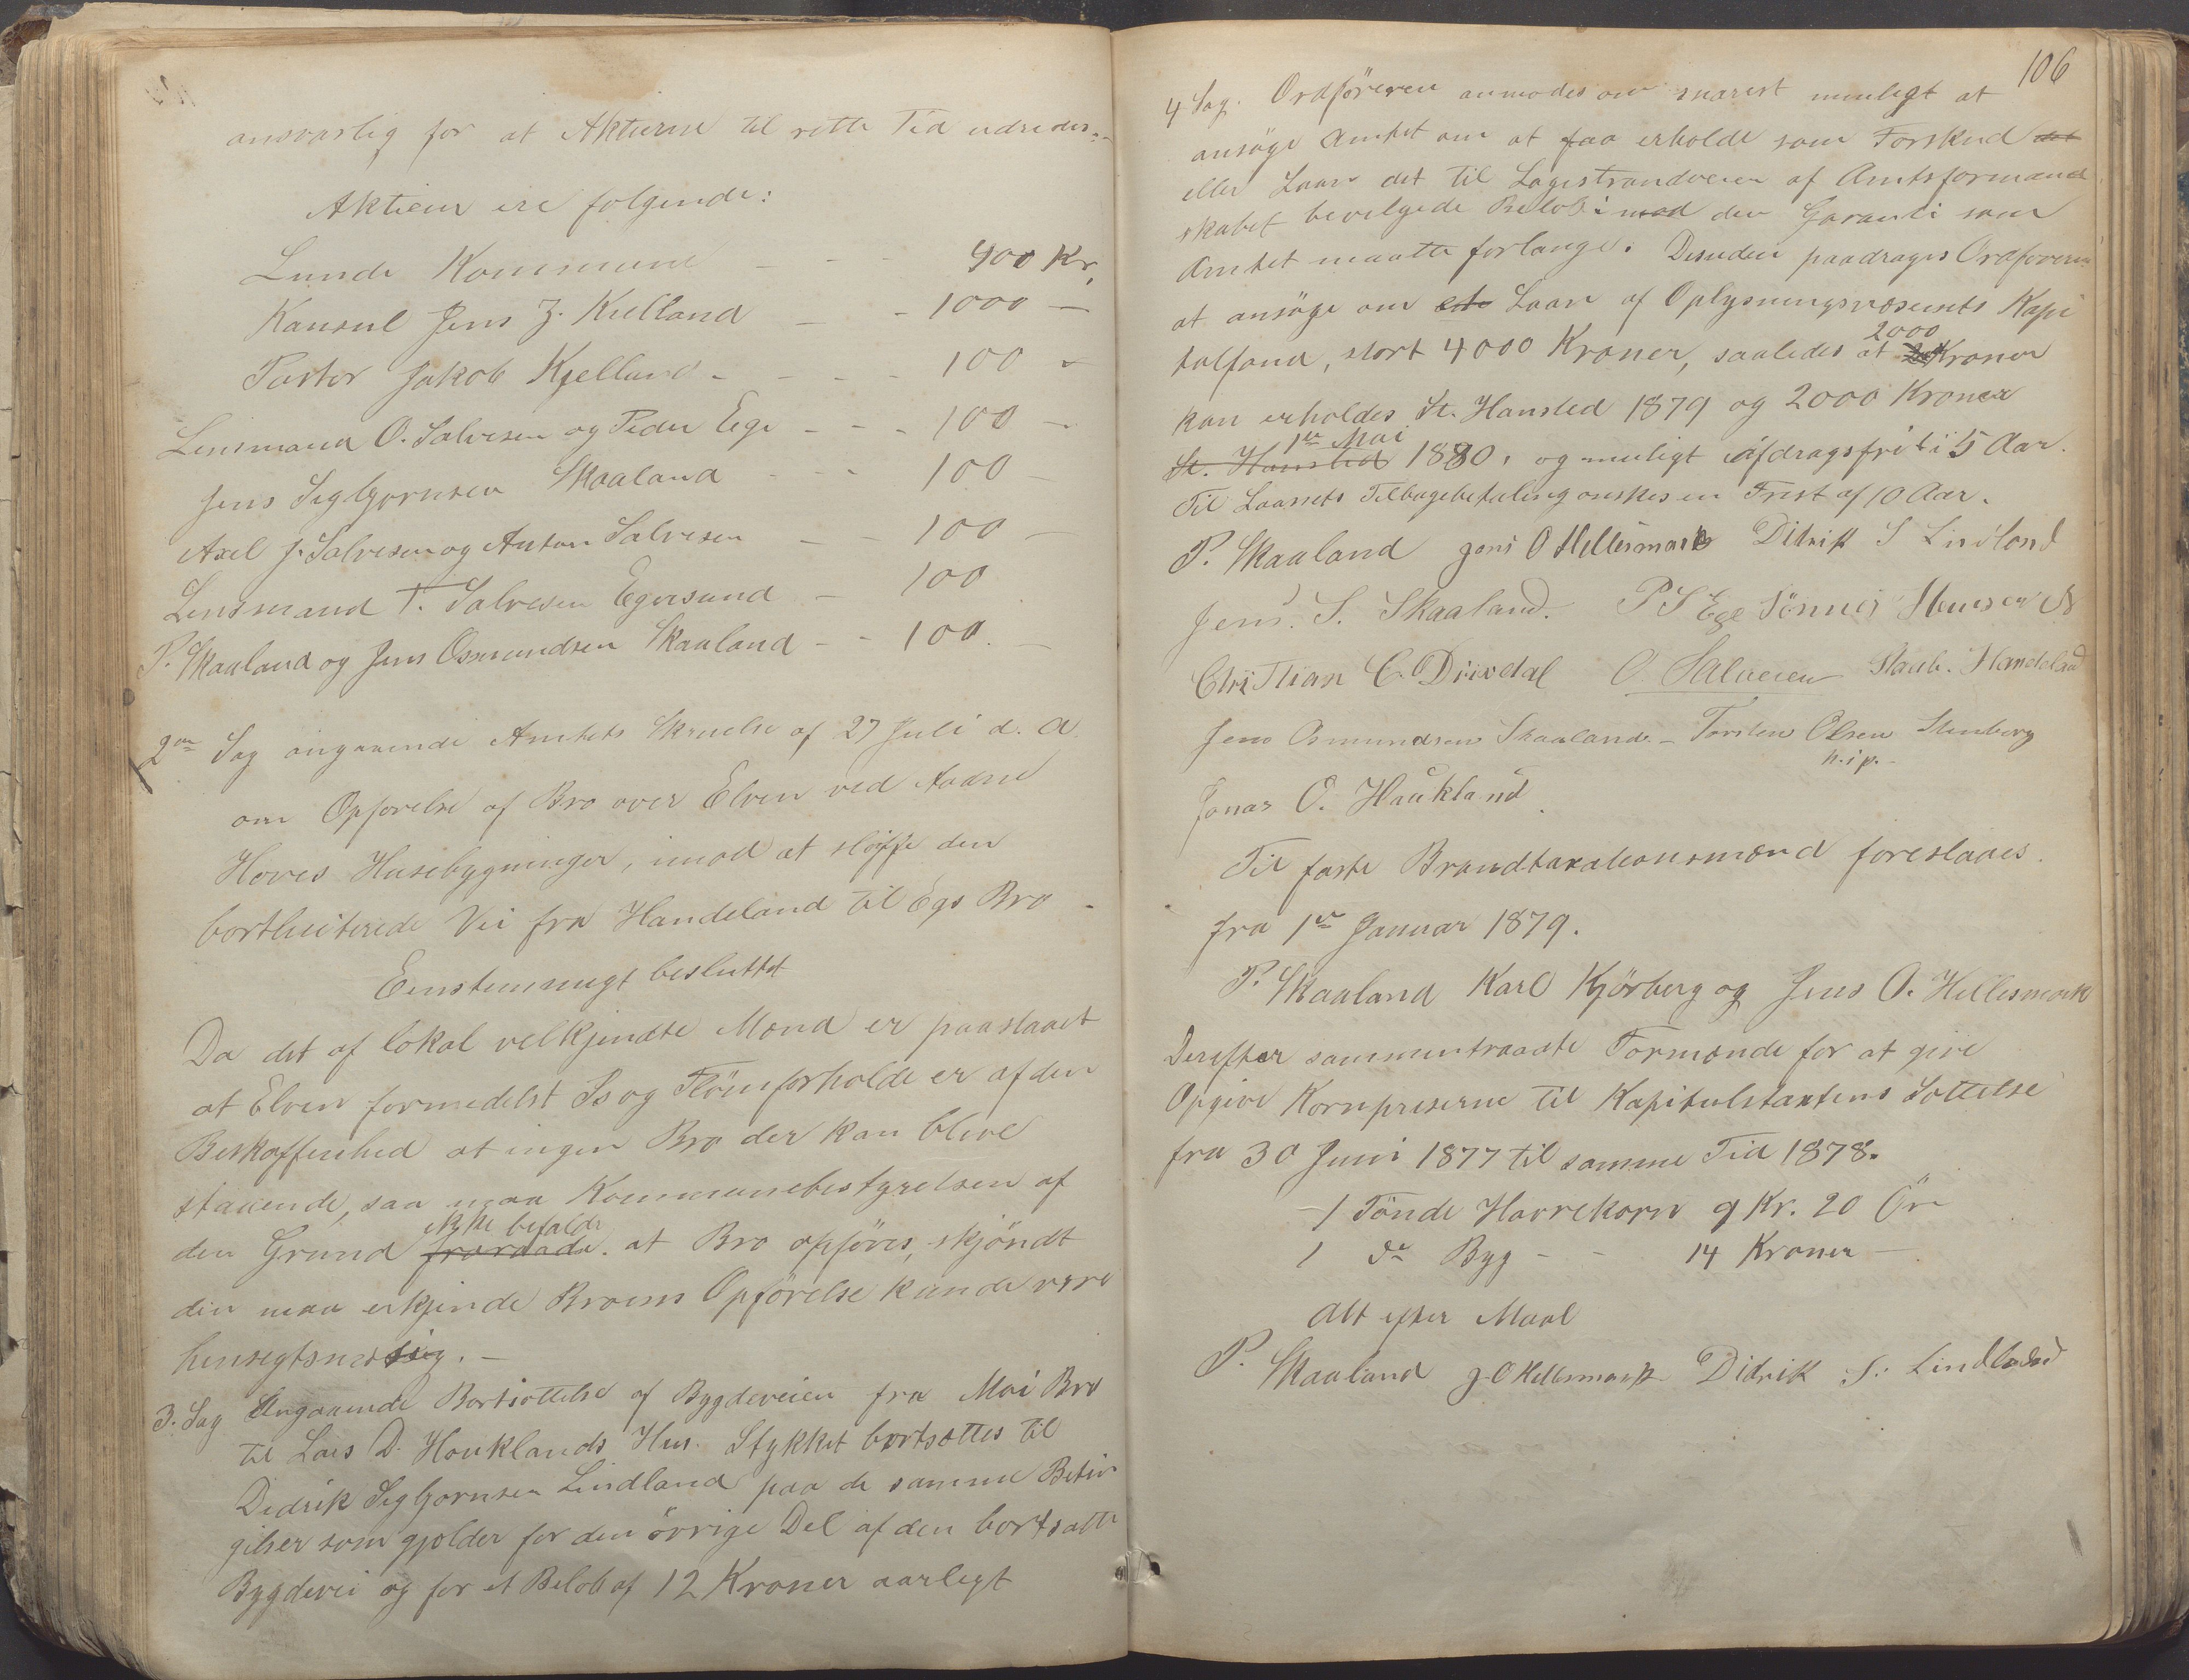 ansvarlig for at Aktierne til rette Tid udredes.-
Aktierne ere følgende:
Lunde Kommune - - - 400 Kr.
Konsul Jens Z. Kielland - - 1000 -
Pastor Jakob Kjelland - - - - 100 -
Lensmand O. Salvesen og Peder Ege - - - 100 -
Jens Sigbjørnsen Skaaland - - 100 -
Axel J. Salvesen og Anton Salvesen - - 100 -
Lensmand T. Salvesen Egersund - 100
P. Skaaland og Jens Osmundsen Skaaland - - 100. -
2en Sag angaaende Amtets Skrivelse af 27 Juli d. A.
om Opførelse af Bro over Elven ved
Hoves Husebygninger, imod at sløffe den
bortliciterede Vei fra Handeland til Egs Bro -
Eenstemmigt besluttet
Da det af lokal velkjendte Mænd er paastaaet
at Elven formedelst Is og Flömforholde er af den
Beskaffenhed at ingen Bro der kan blive
staaende, saa maa Kommunebestyrelsen af
ikke befale
den Grund fraraade. at Bro opföres, skjöndt
den maa erkjende Broens Opförelse kunde være
hensigtsmæssig. -
3. Sag Angaaende Bortsættelse af Bygdeveien fra Moi Bro
til Lars D. Houklands Hus. Stykket bortsættes til
Didrik Sigbjørnsen Lindland paa de samme Betin
gelser som gjælder for den övrige Del af den bortsatte
Bygdevei og for et Beløb af 12 Kroner aarligt
106
4 Sag. Ordföreren anmodes om snarest muligt at
ansöge Amtet om at faa erholde som Forskud det
eller Laan det til Lagestrandveien af Amtsformand
skabet bevilgede Beløb imod den Garanti som
Amtet maatte forlange. Desuden paadrages Ordføreren
at ansöge om ete Laan af Oplysningsvæsenets Kapi
2000
talfond, stort 4000 Kroner, saaledes at Kroner
kan erholdes St. Hansted 1879 og 2000 Kroner
1ste Mai
St. Hansted 1880, og muligt afdragsfrit i 5 Aar.
Til Laanets Tilbagebetaling ønskes en Frist af 10 Aar.
P. Skaaland Jens O Hellesmark Didrik S Lindland
Jens. S. Skaaland. P S Ege Tönnes Hansen
Christian C. Drivdal O. Salvesen Handeland
Jens Osmundsen Skaaland. - Torsten Olsen Stenberg
h. i p. -
Jonas O. Haukland.
Til faste Brandtaxationsmænd foreslaaes.
fra 1ste Januar 1879.
P. Skaaland Karl Kjörberg og Jens O. Hellesmark
Derefter sammentraadte Formænde for at give
Opgive Kornpriserne til Kapitulstaxtens Sættelse
fra 30 Juni 1877 til samme Tid 1878.
1 Tönde Havrekorn 9 Kr. 20 Öre
1 do Byg - - 14 Kroner -
Alt efter Maal
P. Skaaland J. O Hellesmark Didrik S. Lindland